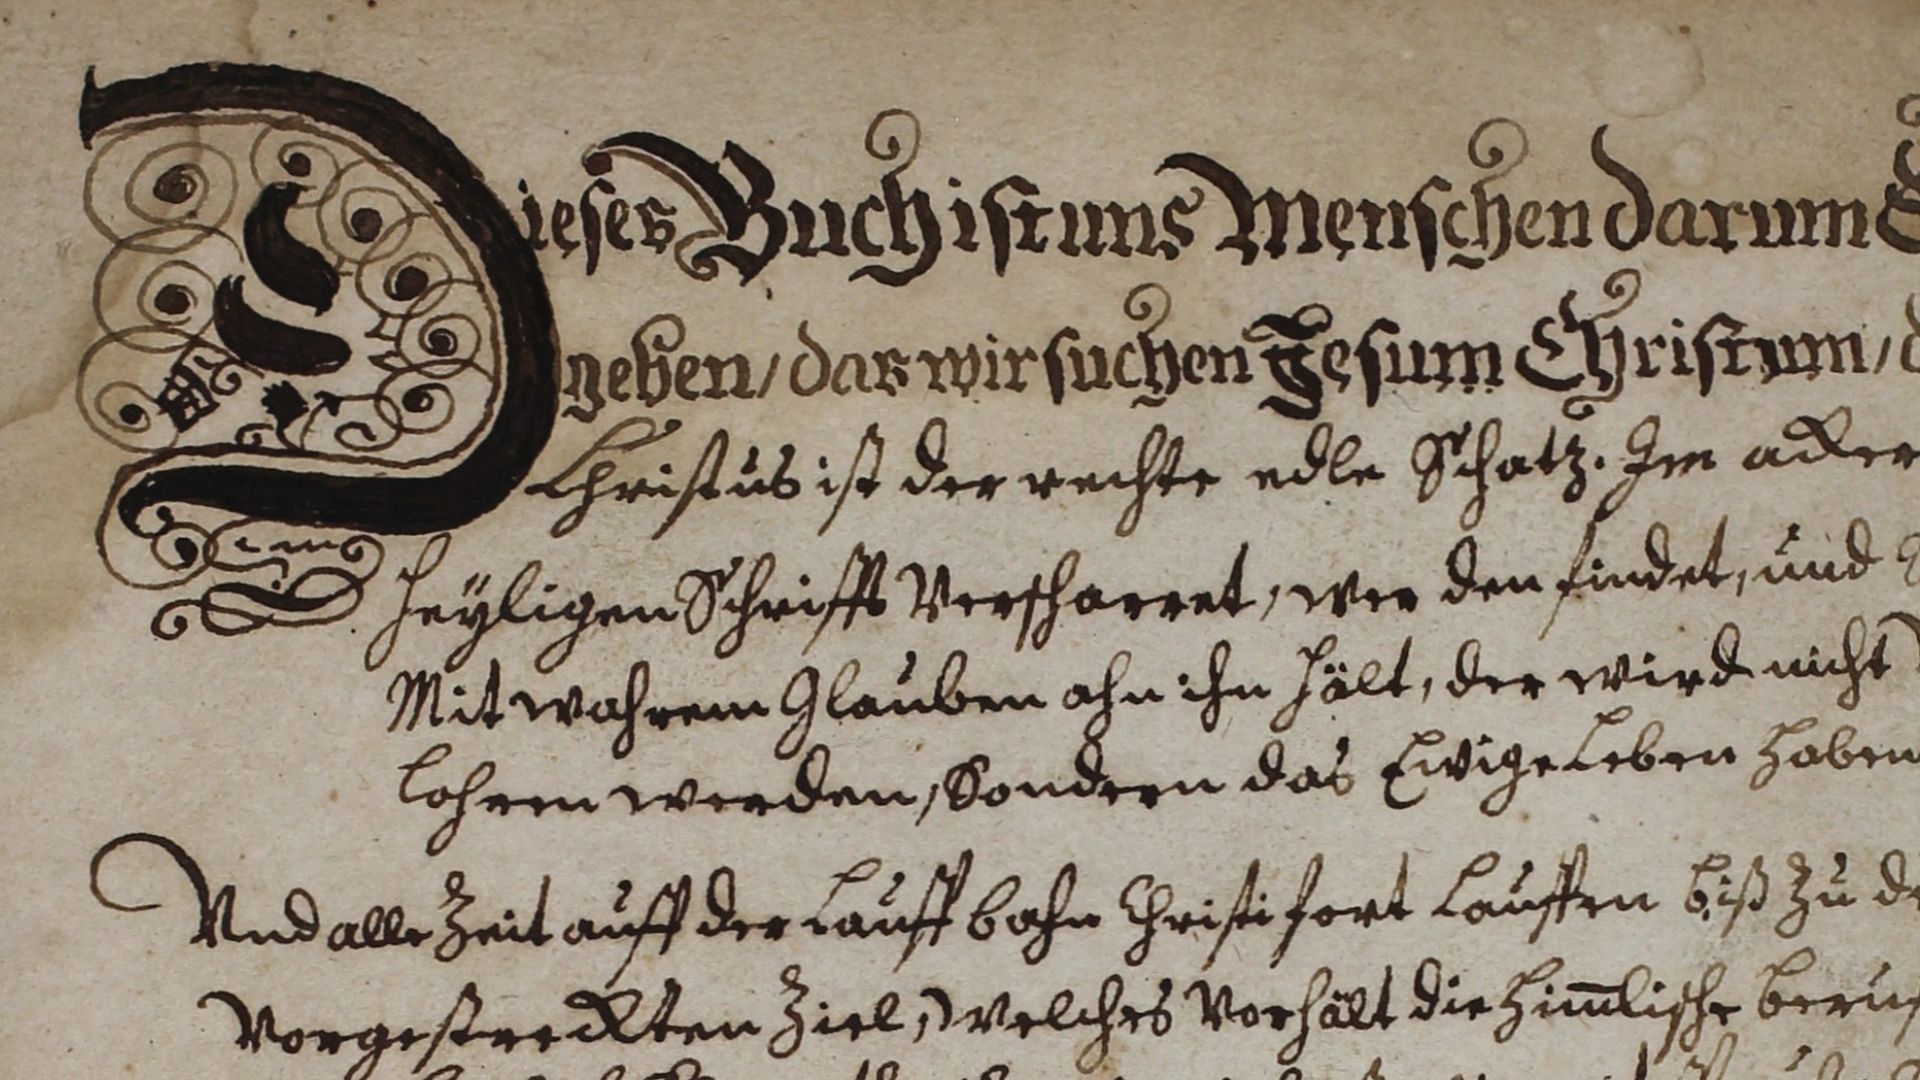 Dieses Buch ist uns Menschen darum
geben, das wir suchen Jesum Christum,
Christus ist der rechte edle Schatz. Im acker
Heyligen Schrifft Verscharret, wer den findet, und
Mit wahrem Glauben ahn ihn hält, der wird nicht
lohren werden, Sondern das Ewige Leben haben
Und alle Zeit auff der Lauff bahn Christi fort Lauffen biß Zu de
Vorgestreckten Ziel, welches Vorhält die Him̄lische beruf